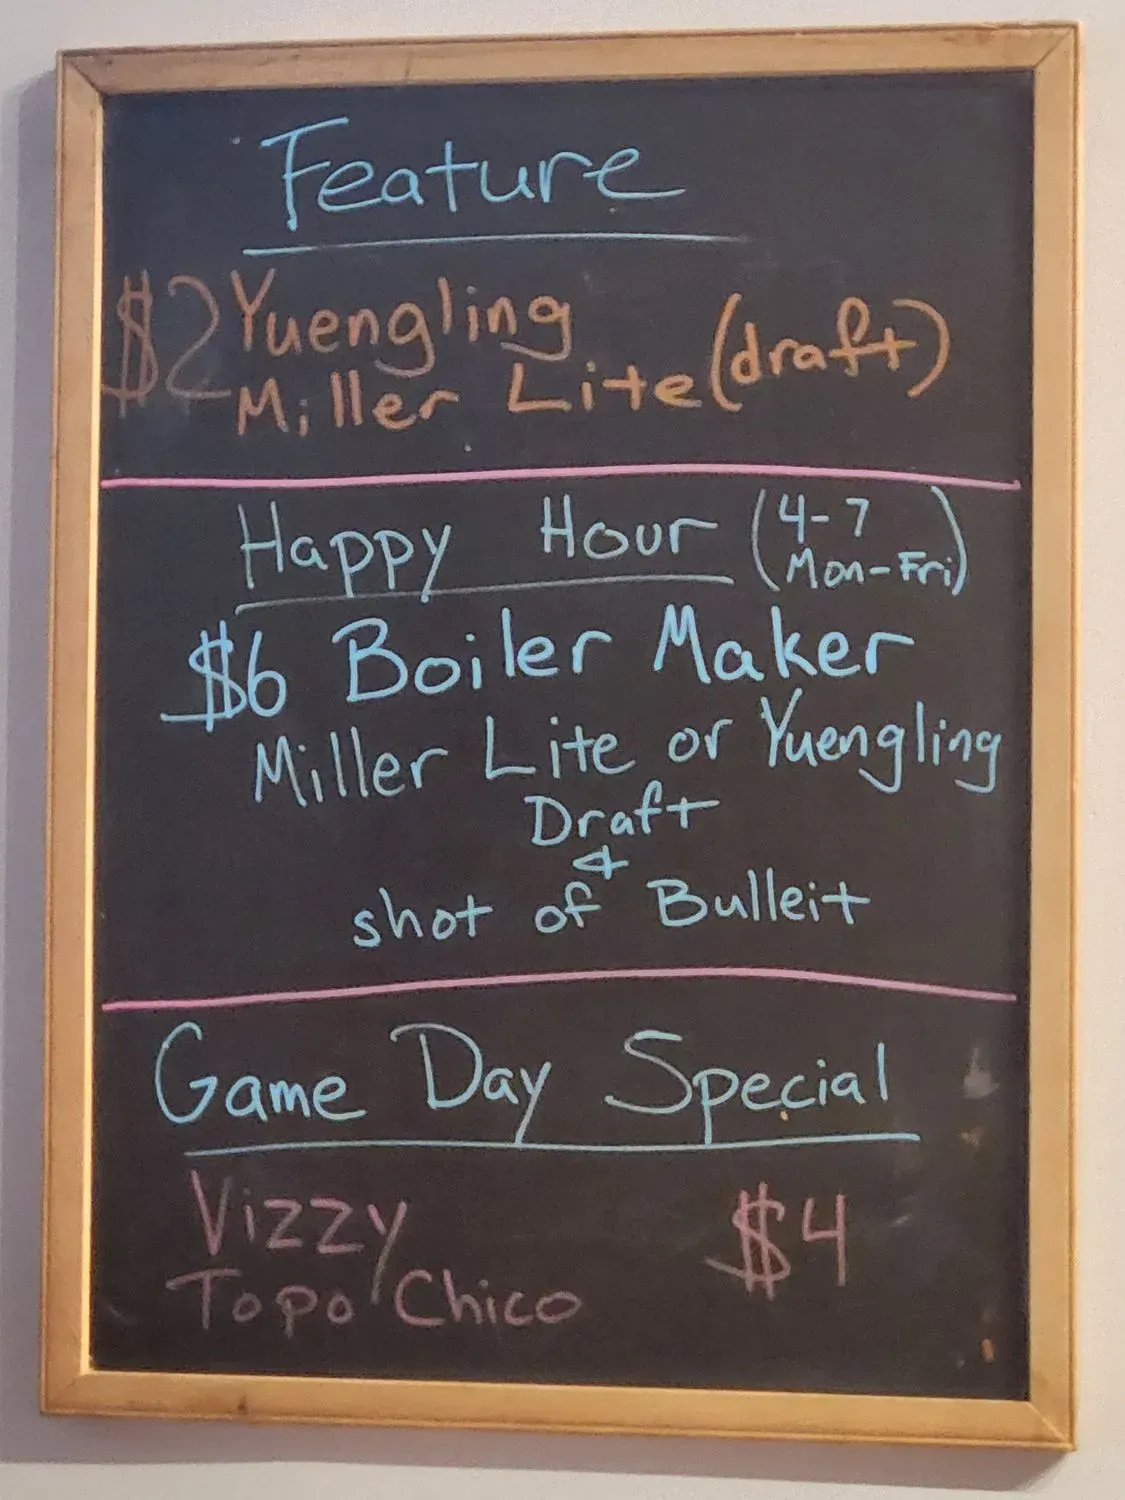 Feature
$2 Yuengling
Miller Lite (draft)
Happy Hour (4-7
Mon-Fri)
$6 Boiler Maker
Miller Lite or Yuengling
Draft
&
shot of Bulleit
Game Day Special
Vizzy $4
Topo Chico